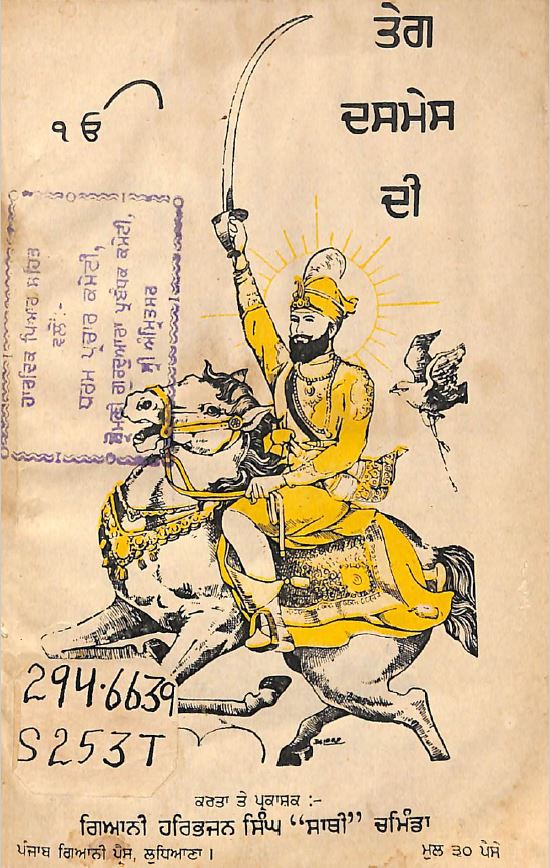 ਤੇਗ
ਦਸਮੇਸ
ਦੀ
੧ ਓ
ਹਾਰਦਿਕ ਪਿਆਰ ਸਹਿਤ
ਵਲੋਂ :-
ਧਰਮ ਪ੍ਰਚਾਰ ਕਮੇਟੀ,
ਸ਼੍ਰੋਮਣੀ ਗੁਰਦੁਆਰਾ ਪ੍ਰਬੰਧਕ ਕਮੇਟੀ,
ਸ੍ਰੀ ਅੰਮ੍ਰਿਤਸਰ
294.6639
S253T
ਕਰਤਾ ਤੇ ਪ੍ਰਕਾਸ਼ਕ :-
ਗਿਆਨੀ ਹਰਿਭਜਨ ਸਿੰਘ “ਸਾਥੀ” ਚਮਿੰਡਾ
ਪੰਜਾਬ ਗਿਆਨੀ ਪ੍ਰੈਸ, ਲੁਧਿਆਣਾ । ਮੁਲ ੩੦ ਪੈਸੇ